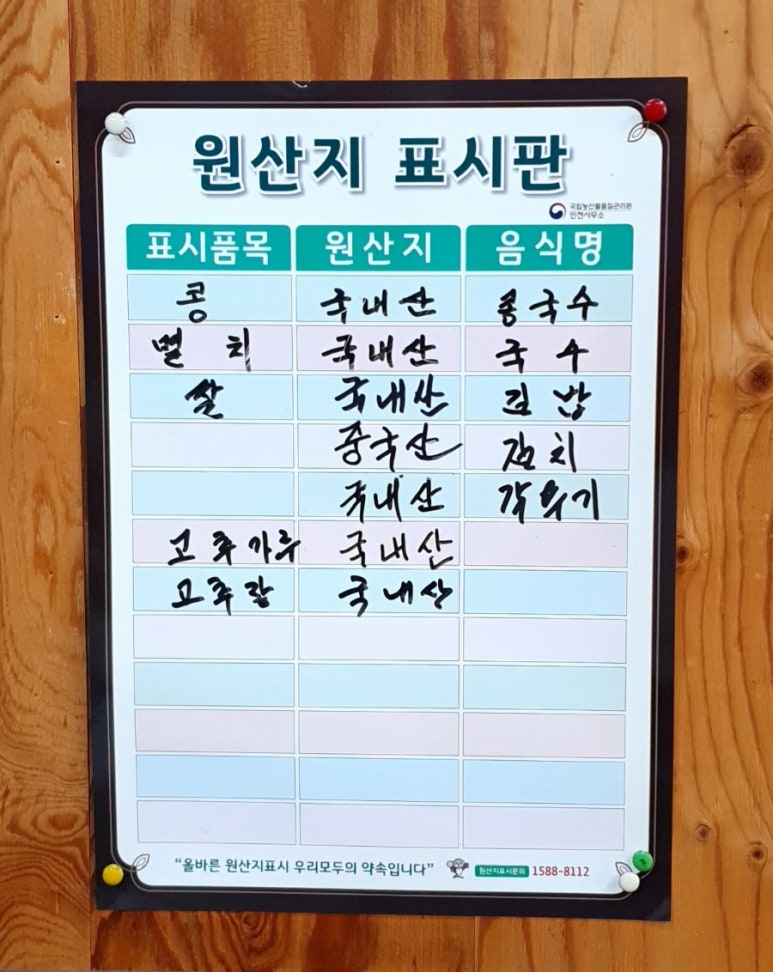 원산지 표시판
국립농산물품질관리원
인천사무소
표시품목 원산지 음식명
콩 국내산 콩국수
멸치 국내산 국수
쌀 국내산 김밥
중국산 김치
국내산 깍두기
고추가루 국내산
고추장 국내산
"올바른 원산지표시 우리모두의 약속입니다" 원산지표시문의 1588-8112